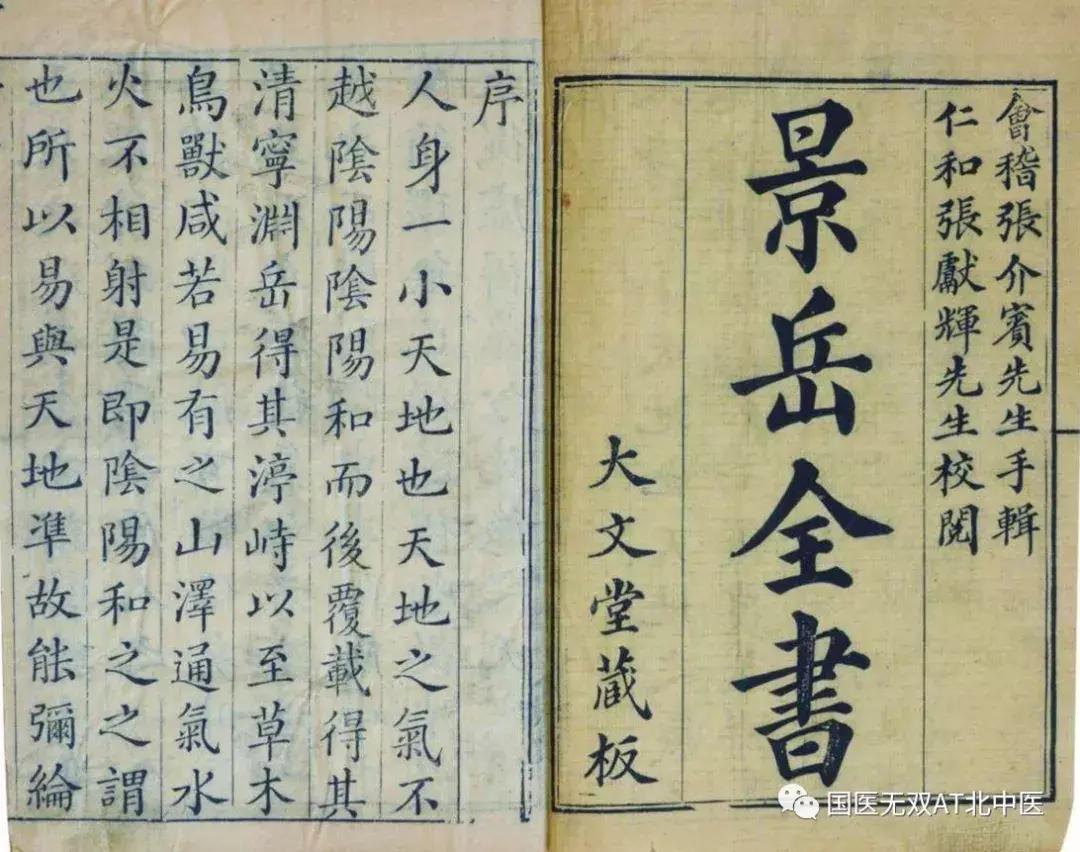 會稽張介賓先生手輯
仁和張獻輝先生校閱
景岳全書
大文堂藏板
序
人身一小天地也天地之氣不
越陰陽陰陽和而後覆載得其
清寧淵岳得其渟峙以至草木
鳥獸咸若易有之山澤通氣水
火不相射是即陰陽和之之謂
也所以易與天地準故能彌綸
国医无双AT北中医